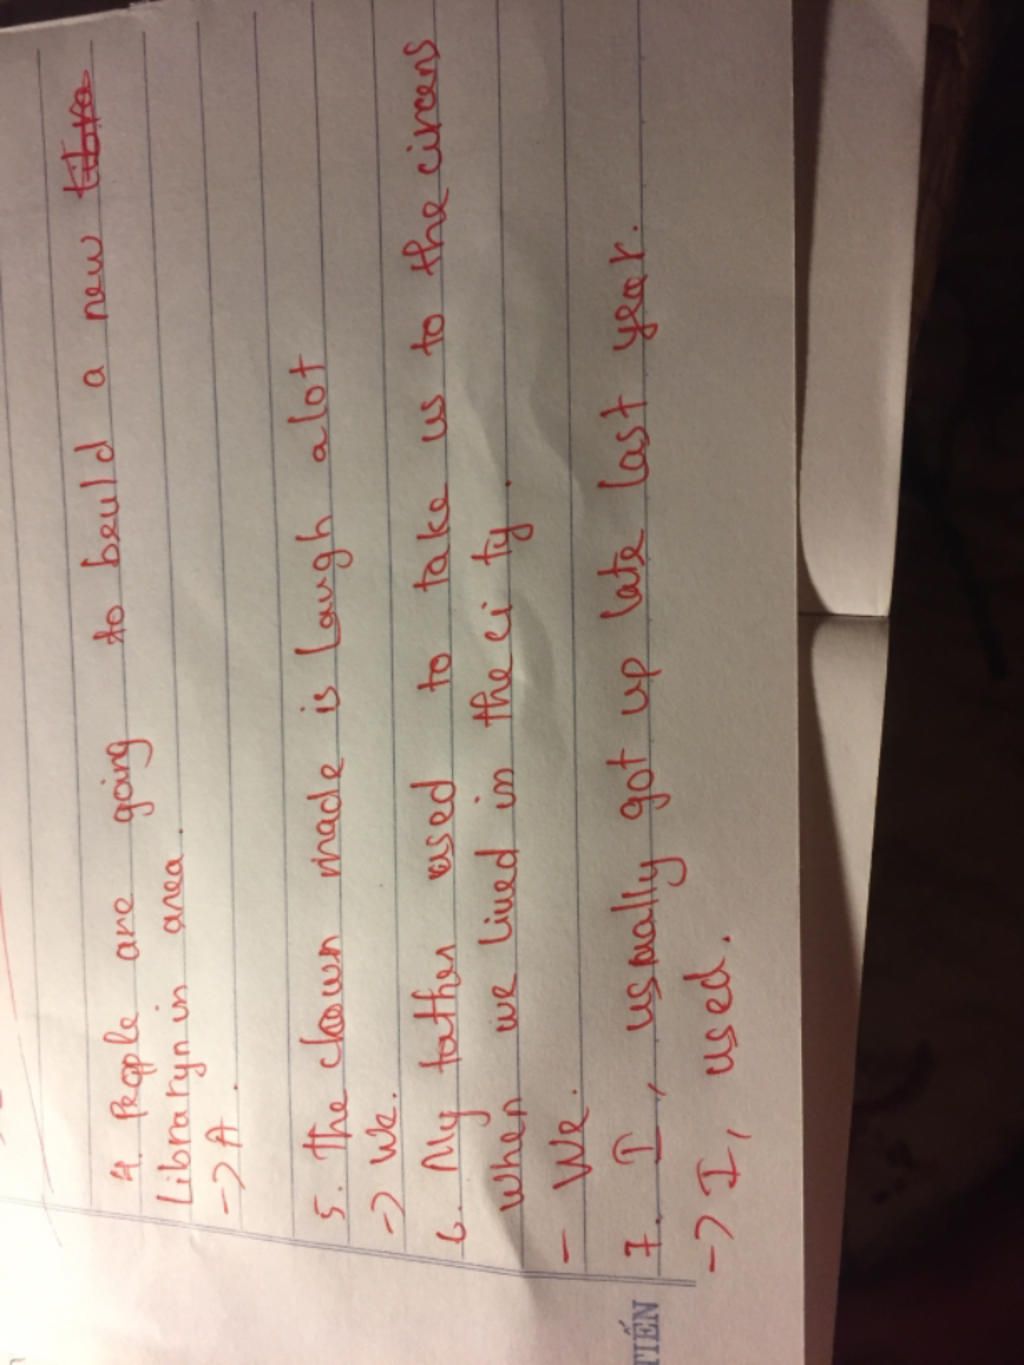 4. People are going to beuld a new
Libraryn in area.
-> A.
5. the clown made is Laugh alot
-> We.
6. My father used to take us to the circens
when we lived in the ci ty.
- We.
7. I, usually got up late last year.
-> I, used.
TIẾN